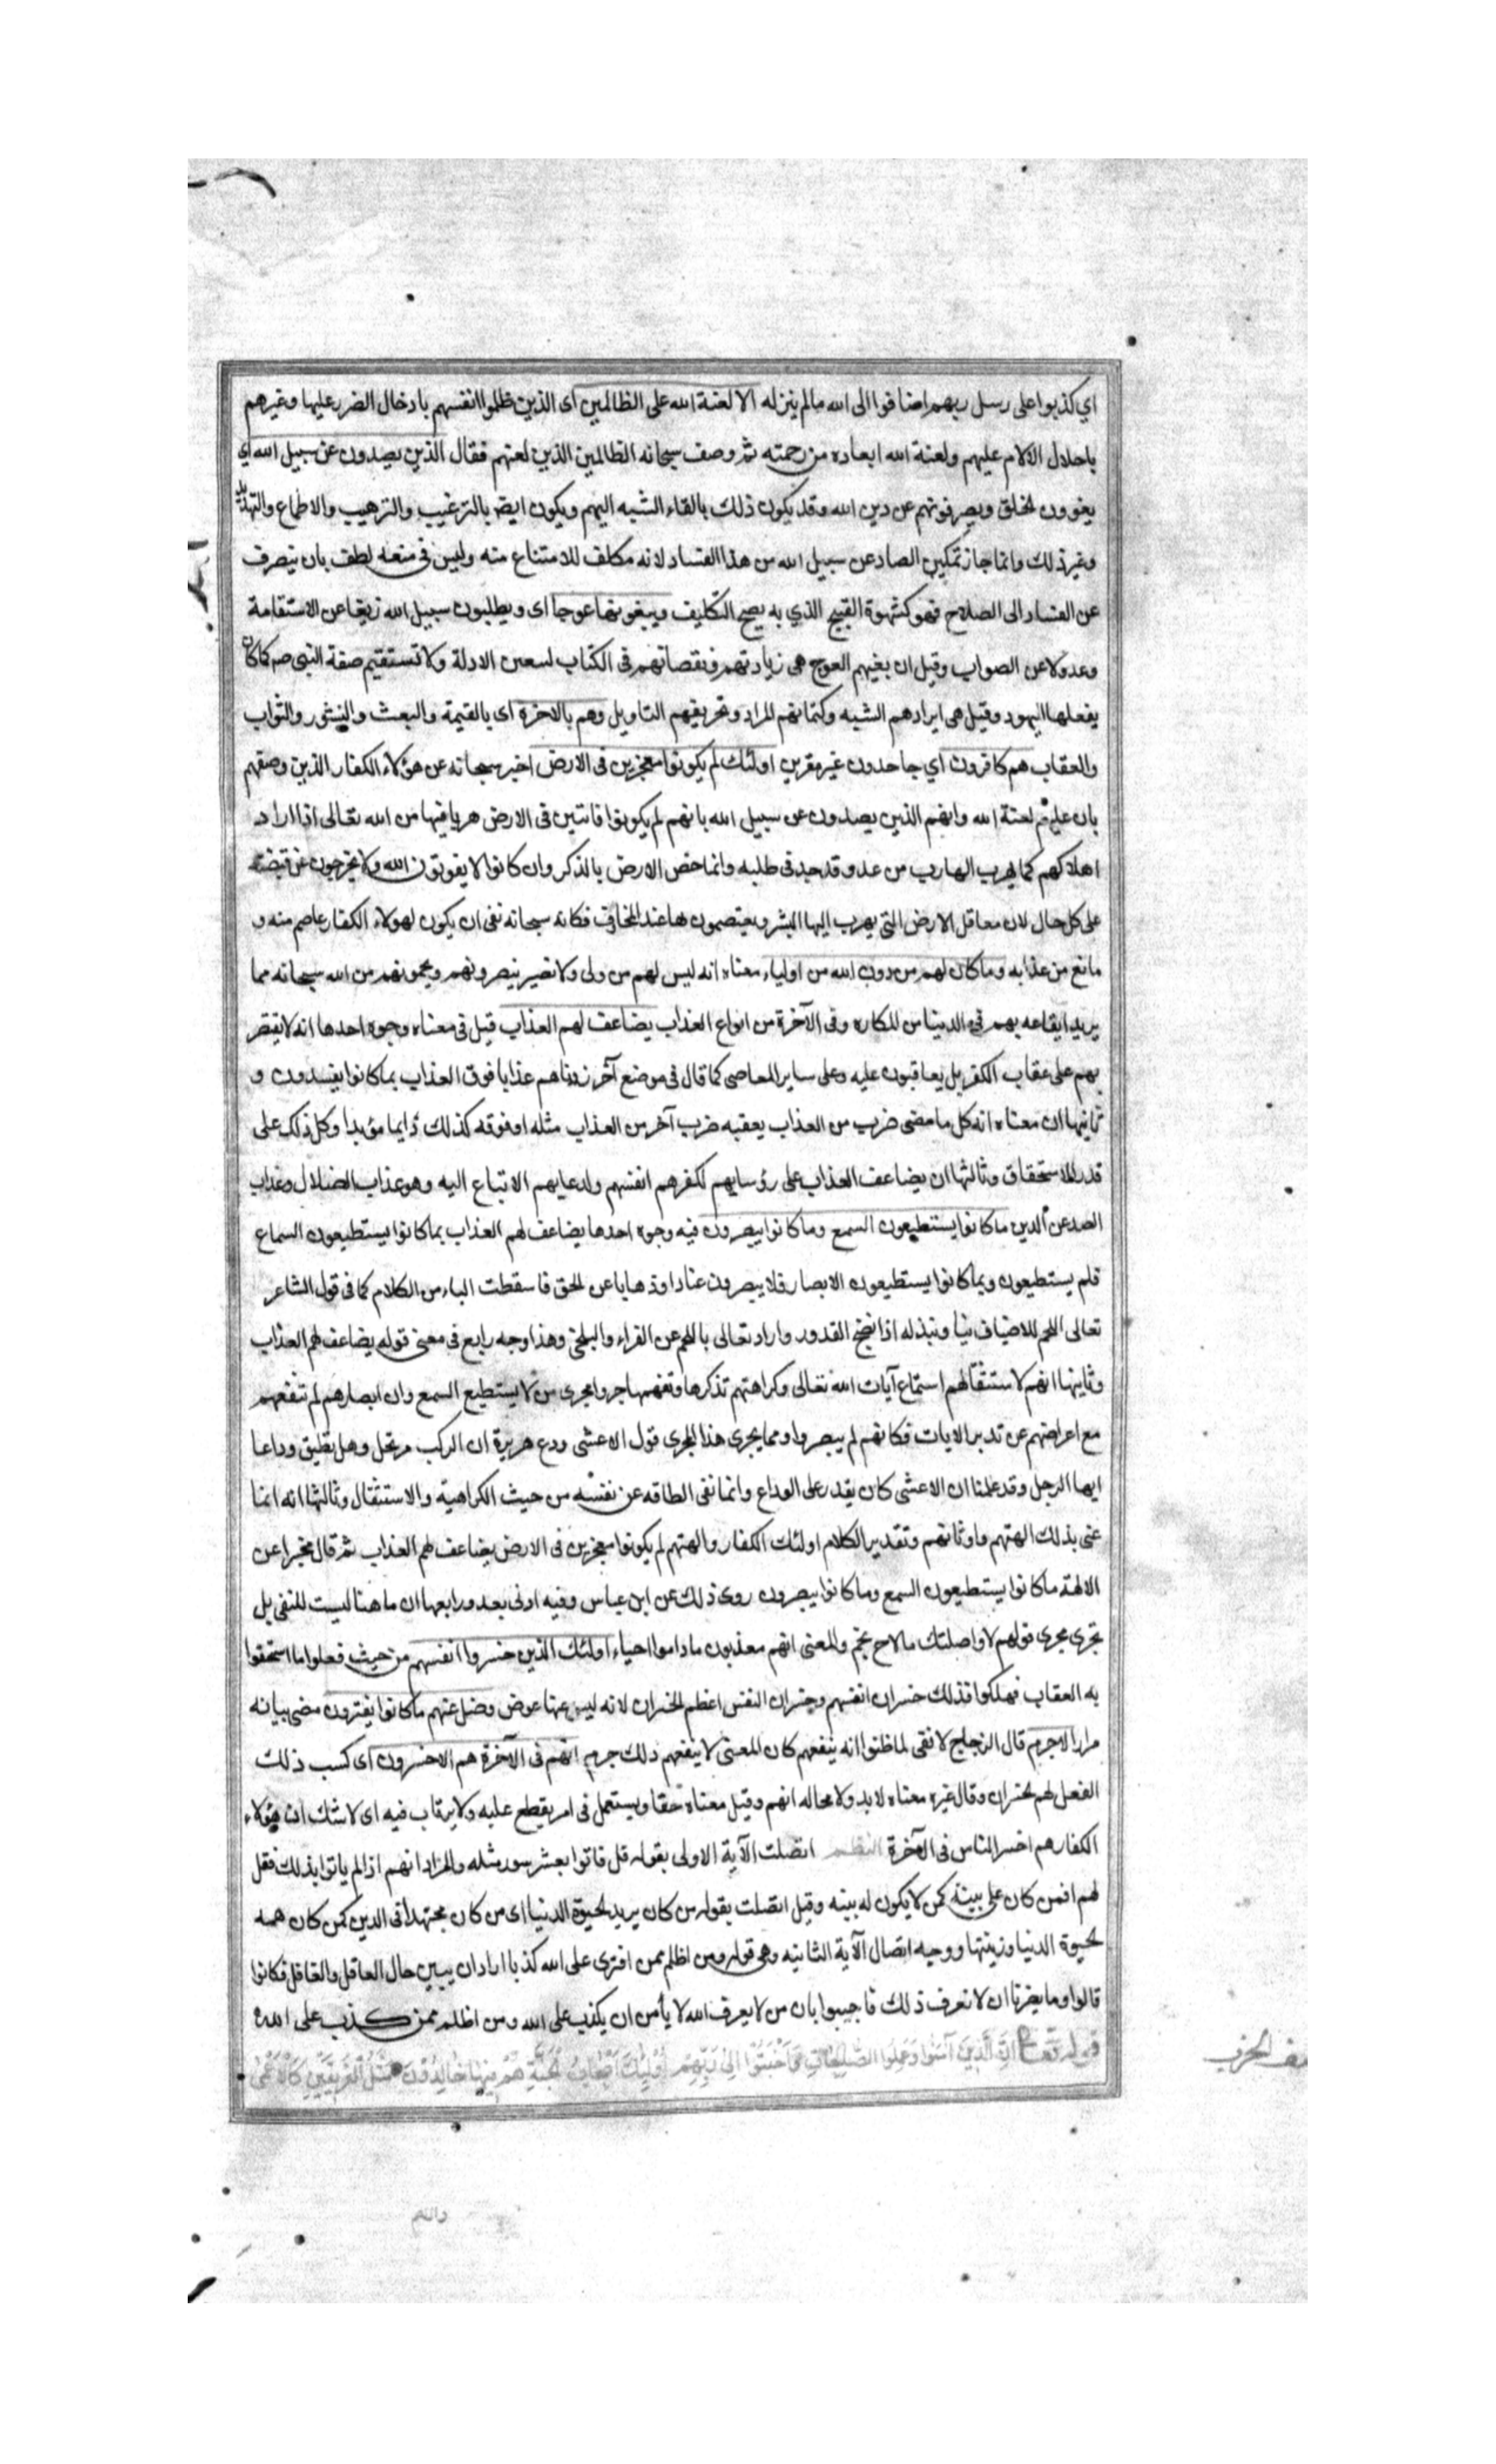 اي كذبوا على رسل ربهم اضافوا الى الله ما لم ينزله الا لعنة الله على الظالمين اى الذين ظلموا انفسهم بادخال الضرر عليها وغيرهم
باحلال الآلام عليهم ولعنة الله ابعاده من رحمته ثم وصف سبحانه الظالمين الذين لعنهم فقال الذين يصدون عن سبيل الله اي
يغوون الخلق ويصرفونهم عن دين الله وقد يكون ذلك بالقاء الشبه اليهم ويكون ايضا بالترغيب والترهيب والاطماع والتهديد
وغير ذلك وانما جاز تمكين الصاد عن سبيل الله من هذا الفساد لانه مكلف للامتناع منه وليس فى منعه لطف بان ينصرف
عن الفساد الى الصلاح فهو كشهوة القبيح الذي به يصح التكليف ويبغونها عوجا اى ويطلبون سبيل الله زيغا عن الاستقامة
وعدولا عن الصواب وقيل ان بغيهم العوج هى زيادتهم ونقصانهم فى الكتاب لسعين الادلة ولا تستقيم صفة النبى صم كما كان
يفعلها اليهود وقيل هى ايرادهم الشبه وكتمانهم المراد وتحريفهم التاويل وهم بالاخرة اى بالقيمة والبعث والنشور والثواب
والعقاب هم كافرون اي جاحدون غير مقرين اولئك لم يكونوا معجزين فى الارض اخبر سبحانه عن هؤلاء الكفار الذين وصفهم
بان عليهم لعنة الله وانهم الذين يصدون عن سبيل الله بانهم لم يكونوا فائتين فى الارض هربا فيها من الله تعالى اذا اراد
اهلاكهم كما يهرب الهارب من عدو قد جد فى طلبه وانما خص الارض بالذكر وان كانوا لا يفوتون الله ولا يخرجون عن قبضته
على كل حال لان معاقل الارض التي يهرب اليها البشر ويعتصمون بها عند المخاوف فكانه سبحانه نفى ان يكون لهولاء الكفار عاصم منه و
مانع من عذابه وما كان لهم من دون الله من اولياء معناه انه ليس لهم من ولى ولا نصير ينصرونهم ويحمونهم من الله سبحانه مما
يريد ايقاعه بهم فى الدينا من المكاره وفى الآخرة من انواع العذاب يضاعف لهم العذاب قيل فى معناه وجوه احدها انه لا يقتصر
بهم على عقاب الكفر بل يعاقبون عليه وعلى ساير المعاصى كما قال فى موضع آخر زدناهم عذابا فوق العذاب بما كانوا يفسدون و
ثانيها ان معناه انه كل ما مضى ضرب من العذاب يعقبه ضرب آخر من العذاب مثله او فوقه كذلك دايما مؤبدا وكل ذلك على
قدر الاستحقاق وثالثها ان يضاعف العذاب على رؤسايهم لكفرهم انفسهم ولدعايهم الاتباع اليه وهو عذاب الضلال وعذاب
الصد عن الدين ما كانوا يستطيعون السمع وما كانوا يبصرون فيه وجوه احدها يضاعف لهم العذاب بما كانوا يستطيعون السماع
فلم يستطيعون وبما كانوا يستطيعون الابصار فلا يبصرون عنادا وذهابا عن الحق فاسقطت الباء من الكلام كما فى قول الشاعر
تعالى اللحم للاضياف نيا ونبذله اذا نضج القدور واراد تعالى باللحم عن الفراء والبلخى وهذا وجه رابع فى معنى قوله يضاعف لهم العذاب
وثاينها انهم لاستثقالهم استماع آيات الله تعالى وكراهتهم تذكرها وتفهمها جروا مجرى من لا يستطيع السمع وان ابصارهم لم تنفعهم
مع اعراضهم عن تدبر الايات فكانهم لم يبصروا ومما يجرى هذا المجرى قول الاعشى ودع هريرة ان الركب مرتحل وهل تطيق وداعا
ايها الرجل وقد علمنا ان الاعشى كان يقدر على الوداع وانما نفى الطاقه عن نفسه من حيث الكراهية والاستثقال وثالثها انه انما
عنى بذلك الهتهم واوثانهم وتقدير الكلام اولئك الكفار والهتهم لم يكونوا معجزين فى الارض يضاعف لهم العذاب ثم قال مخبرا عن
الالهة ما كانوا يستطيعون السمع وما كانوا يبصرون روى ذلك عن ابن عباس وفيه ادنى بعد ورابعها ان ما هنا ليست للنفى بل
تجرى مجرى قولهم لاواصلنك ما لاح نجم والمعنى انهم معذبون ما داموا احياء اولئك الذين خسروا انفسهم من حيث فعلوا ما استحقوا
به العقاب فهلكوا فذلك خسران انفسهم وخسران النفس اعظم الخسران لانه ليس عنها عوض وضل عنهم ما كانوا يفترون مضى بيانه
مرارا لاجرم قال الزجاج لا نفى لما ظنوا انه ينفعهم كان المعنى لا ينفعهم ذلك جرم انهم فى الآخرة هم الاخسرون اى كسب ذلك
الفعل لهم الخسران وقال غيره معناه لا بد ولا محاله انهم وقيل معناه حقا ويستعمل فى امر يقطع عليه ولا يرتاب فيه اى لا شك ان هؤلاء
الكفار هم اخسر الناس فى الآخرة النظم اتصلت الآية الاولى بقوله قل فاتوا بعشر سور مثله والمراد انهم اذا لم ياتوا بذلك فقل
لهم افمن كان على بينة كمن لا يكون له بينه وقيل اتصلت بقوله من كان يريد الحيوة الدنيا اى من كان مجتهدا فى الدين كمن كان همه
الحيوة الدنيا وزينتها ووجه اتصال الآية الثانيه وهى قوله ومن اظلم ممن افترى على الله كذبا اراد ان يبين حال العاقل والغافل فكانوا
قالوا وما يضرنا ان لا نعرف ذلك فاجيبوا بان من لا يعرف الله لا يأمن ان يكذب على الله ومن اظلم ممن كذب على الله
قوله تعالى اِنَّ الَّذِينَ آمَنُوا وَعَمِلُوا الصَّالِحَاتِ وَاَخْبَتُوا اِلى رَبِّهِمْ اُولئِكَ اَصْحَابُ الْجَنَّةِ هُمْ فِيهَا خَالِدُونَ مَثَلُ الْفَرِيقَيْنِ كَالْاَعْمى
نصف الحزب
والاصم